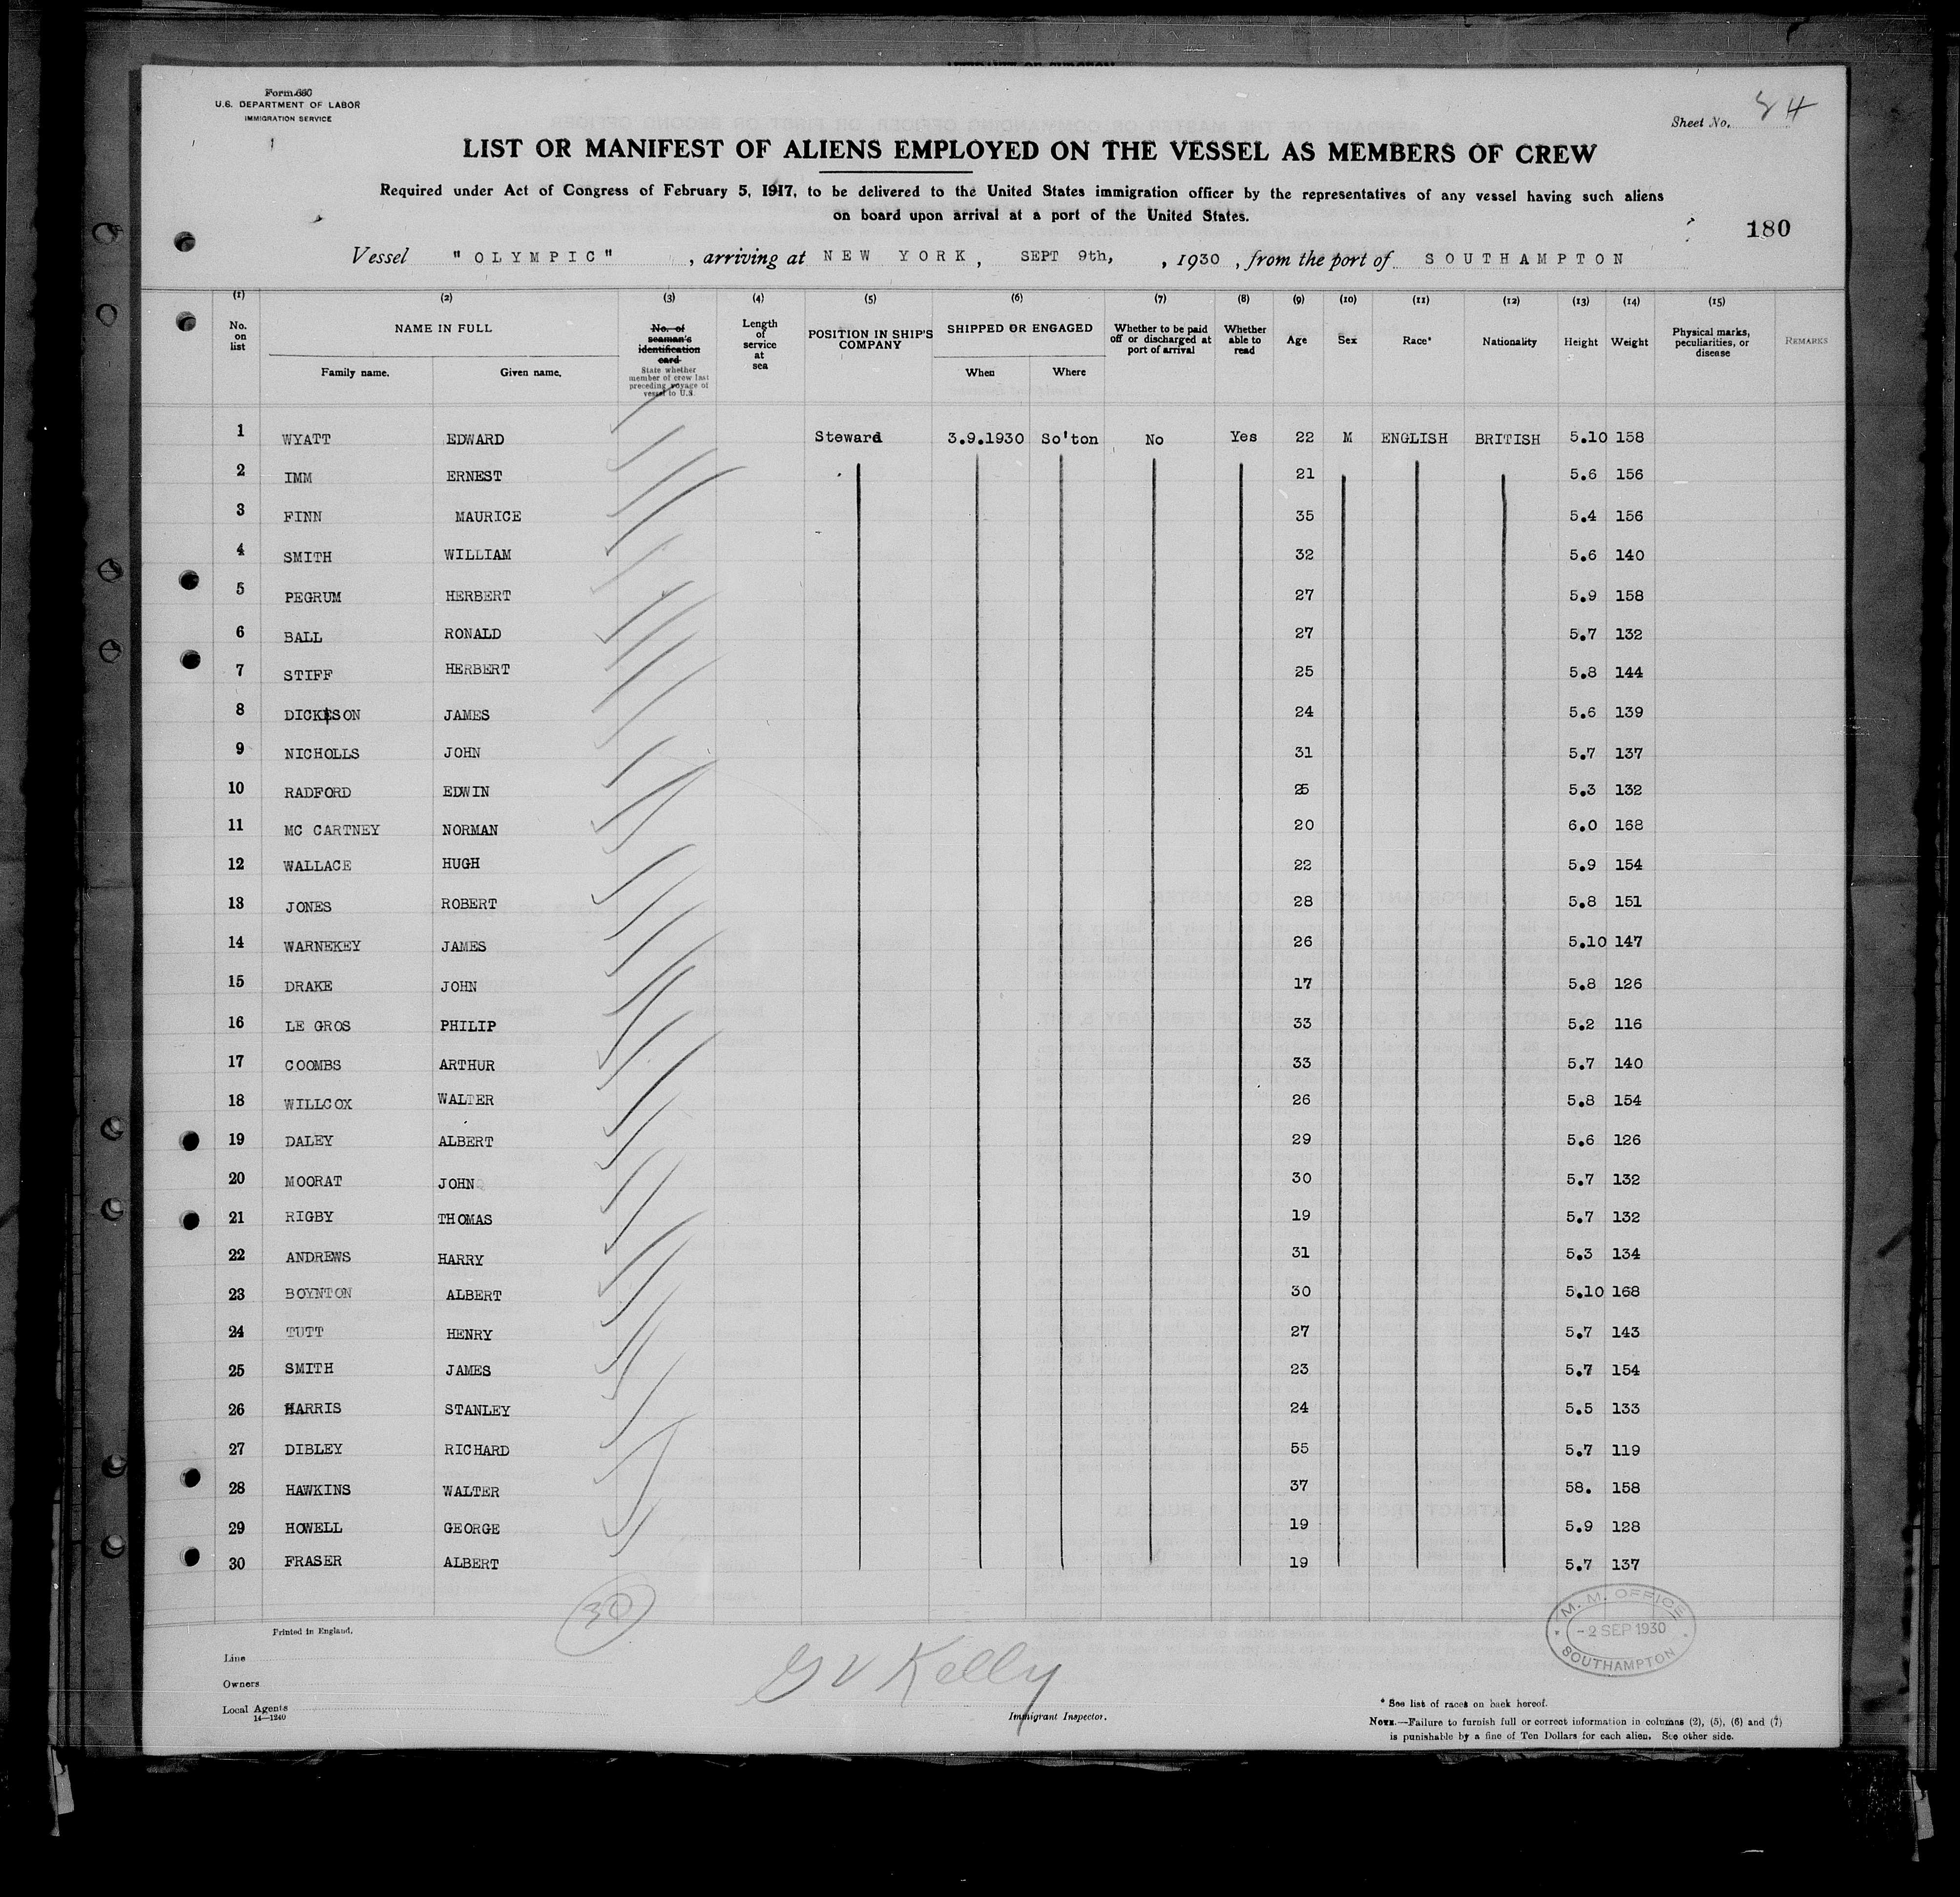 Form 680
U.S. DEPARTMENT OF LABOR
IMMIGRATION SERVICE
Sheet No. 84
LIST OR MANIFEST OF ALIENS EMPLOYED ON THE VESSEL AS MEMBERS OF CREW
Required under Act of Congress of February 5, 1917, to be delivered to the United States immigration officer by the representatives of any vessel having such aliens
on board upon arrival at a port of the United States.
180
Vessel "OLYMPIC" , arriving at NEW YORK, SEPT 9th, , 1930 , from the port of SOUTHAMPTON
(1) (2) (3) (4) (5) (6) (7) (8) (9) (10) (11) (12) (13) (14) (15)
No. on list NAME IN FULL Family name. Given name. No. of seaman's identification card State whether member of crew last preceding voyage of vessel to U.S. Length of service at sea POSITION IN SHIP'S COMPANY SHIPPED OR ENGAGED When Where Whether to be paid off or discharged at port of arrival Whether able to read Age Sex Race* Nationality Height Weight Physical marks, peculiarities, or disease REMARKS
1 WYATT EDWARD Steward 3.9.1930 So'ton No Yes 22 M ENGLISH BRITISH 5.10 158
2 IMM ERNEST 21 5.6 156
3 FINN MAURICE 35 5.4 156
4 SMITH WILLIAM 32 5.6 140
5 PEGRUM HERBERT 27 5.9 158
6 BALL RONALD 27 5.7 132
7 STIFF HERBERT 25 5.8 144
8 DICKESON JAMES 24 5.6 139
9 NICHOLLS JOHN 31 5.7 137
10 RADFORD EDWIN 25 5.3 132
11 MC CARTNEY NORMAN 20 6.0 168
12 WALLACE HUGH 22 5.9 154
13 JONES ROBERT 28 5.8 151
14 WARNEKEY JAMES 26 5.10 147
15 DRAKE JOHN 17 5.8 126
16 LE GROS PHILIP 33 5.2 116
17 COOMBS ARTHUR 33 5.7 140
18 WILLCOX WALTER 26 5.8 154
19 DALEY ALBERT 29 5.6 126
20 MOORAT JOHN 30 5.7 132
21 RIGBY THOMAS 19 5.7 132
22 ANDREWS HARRY 31 5.3 134
23 BOYNTON ALBERT 30 5.10 168
24 TUTT HENRY 27 5.7 143
25 SMITH JAMES 23 5.7 154
26 HARRIS STANLEY 24 5.5 133
27 DIBLEY RICHARD 55 5.7 119
28 HAWKINS WALTER 37 58. 158
29 HOWELL GEORGE 19 5.9 128
30 FRASER ALBERT 19 5.7 137
30
M. M. OFFICE
-2 SEP 1930
SOUTHAMPTON
Printed in England.
Line
Owners
Local Agents
14—1240
G V Kelly
Immigrant Inspector.
* See list of races on back hereof.
NOTE.—Failure to furnish full or correct information in columns (2), (5), (6) and (7)
is punishable by a fine of Ten Dollars for each alien. See other side.